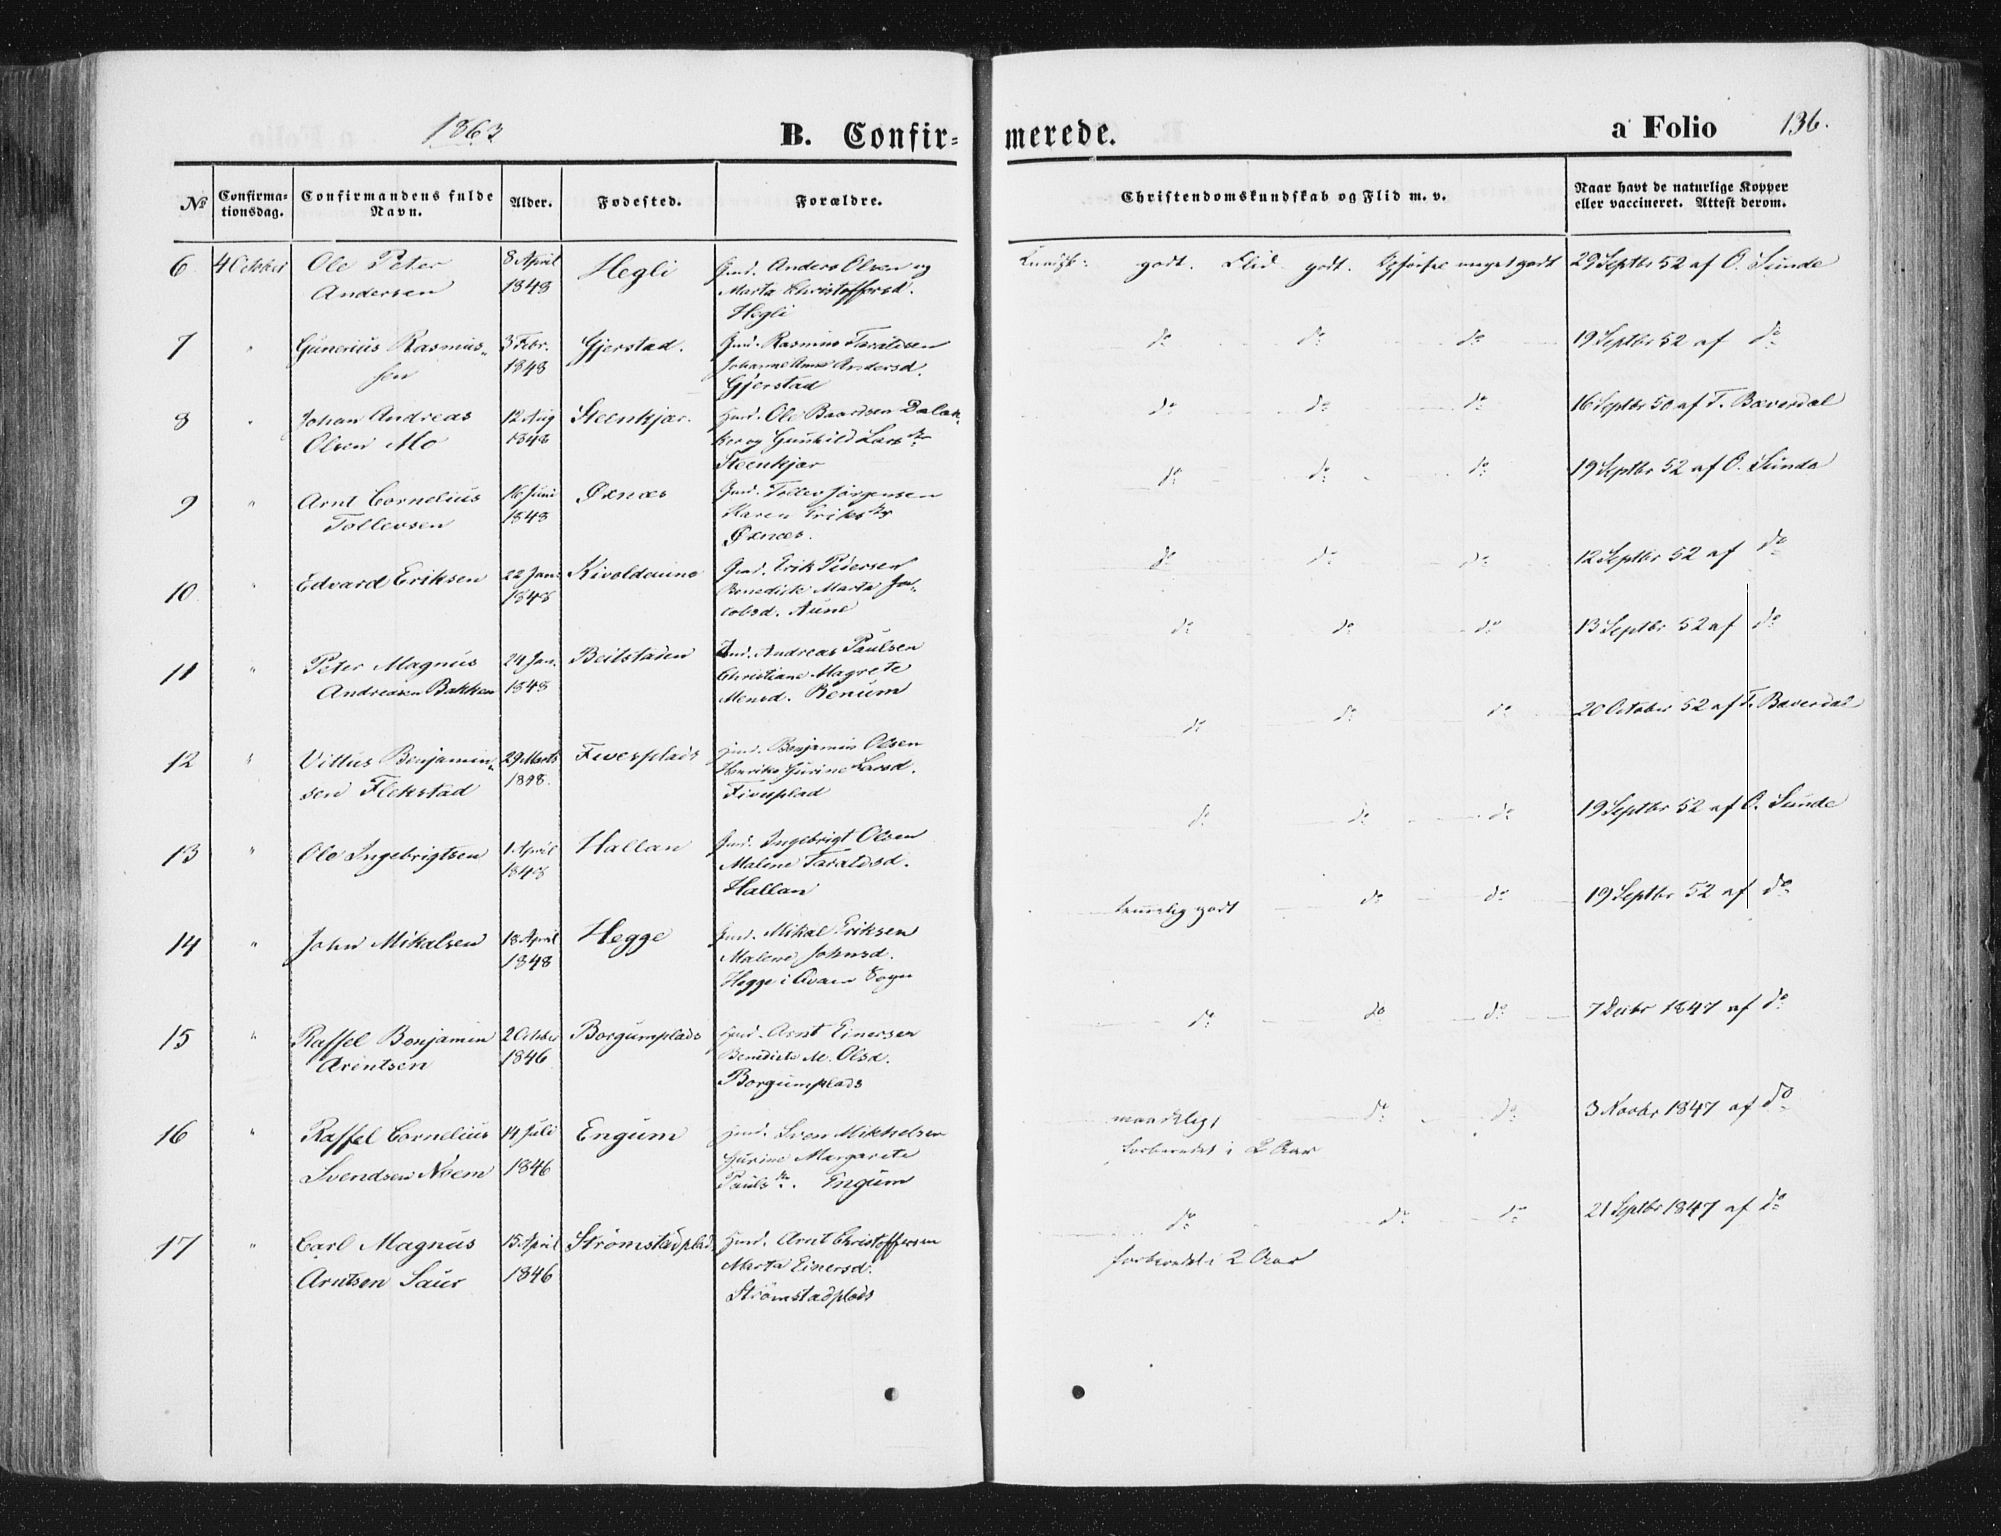 1863
B. Confirmerede.
a Folio 136.
No
Confirmationsdag.
Confirmandens fulde Navn.
Alder.
Fødested.
Forældre.
Christendomskundskab og Flid m. v.
Naar havt de naturlige Kopper eller vaccineret. Attest derom.
6 4 October Ole Peter 8 April Hegli Gmd. Anders Olsen og godt. Flid godt. Opførsel meget godt 29 Septbr 52 af O. Sunde
Andersen 1848 Marta Christoffersd.
Hegli
7 " Gunerius Rasmus- 3 Febr. Gjerstad. Gmd. Rasmus Taraldsen do do do 19 Septbr 52 af do
sen 1848 Andersd.
Gjerstad
8 " Johan Andreas 12 Aug Steenkjær. Hmd. Ole Baardsen Dalak- do do do 16 Septbr 50 af T. Bæverdal
Olsen Mo 1848 ker og Gunhild Larsdr
Steenkjær
9 " Arnt Cornelius 16 Juni Øxnæs Gmd. Tollev Jørgensen do do do 19 Septbr 52 af O. Sunde
Tollevsen 1848 Karen Eriksdr
Øxnæs.
10 " Edvard Eriksen 22 Jan. Kivoldaune Gmd. Erik Pedersen do do do 12 Septbr 52 af do
1848 Benedicte Marta Ja-
cobsd. Aune
11 " Peter Magnus 24 Jan. Beitstaden Gmd. Andreas Paulsen do do do 13 Septbr 52 af do
Andreasen Bakken 1848 Christiane Magrete
Mensd. Benum
12 " Vittus Benjamin- 29 Marts Fiverplads Hmd. Benjamin Olsen do do do 20 October 52 af T. Bæverdal
sen Flekstad 1848. Gurine Larsd.
Fiverplad
13 " Ole Ingebrigtsen 1 April Hallan Gmd. Ingebrigt Olsen do do do 19 Septbr 52 af O. Sunde
1848 Malene Taraldsd.
Hallan
14 " John Mikalsen 18 April Hegge Gmd. Mikal Eriksen temmelig godt do do 19 Septbr 52 af do
1848 Malene Johnsd.
Hegge i Qvam Sogn
15 " Raffel Benjamin 2 October Borgumplads Hmd. Arnt Einersen do do do 7 Decbr 1847 af do
Arentsen 1846 Benedicte M. Olsd.
Borgumplads
16 " Raffel Cornelius 14 Juli Engum Hmd. Sven Mikkelsen maadelig, do do 3 Novbr 1847 af do
Svendsen Noem 1846 Gurine Margarete forberedet i 2 Aar
Paulsdr. Engum
17 " Carl Magnus 15 April Strømstadplad. Hmd. Arnt Christoffersen do do do 21 Septbr 1847 af do
Arntsen Saur 1846 Marta Einersd. forberedet i 2 Aar
Strømstadplads